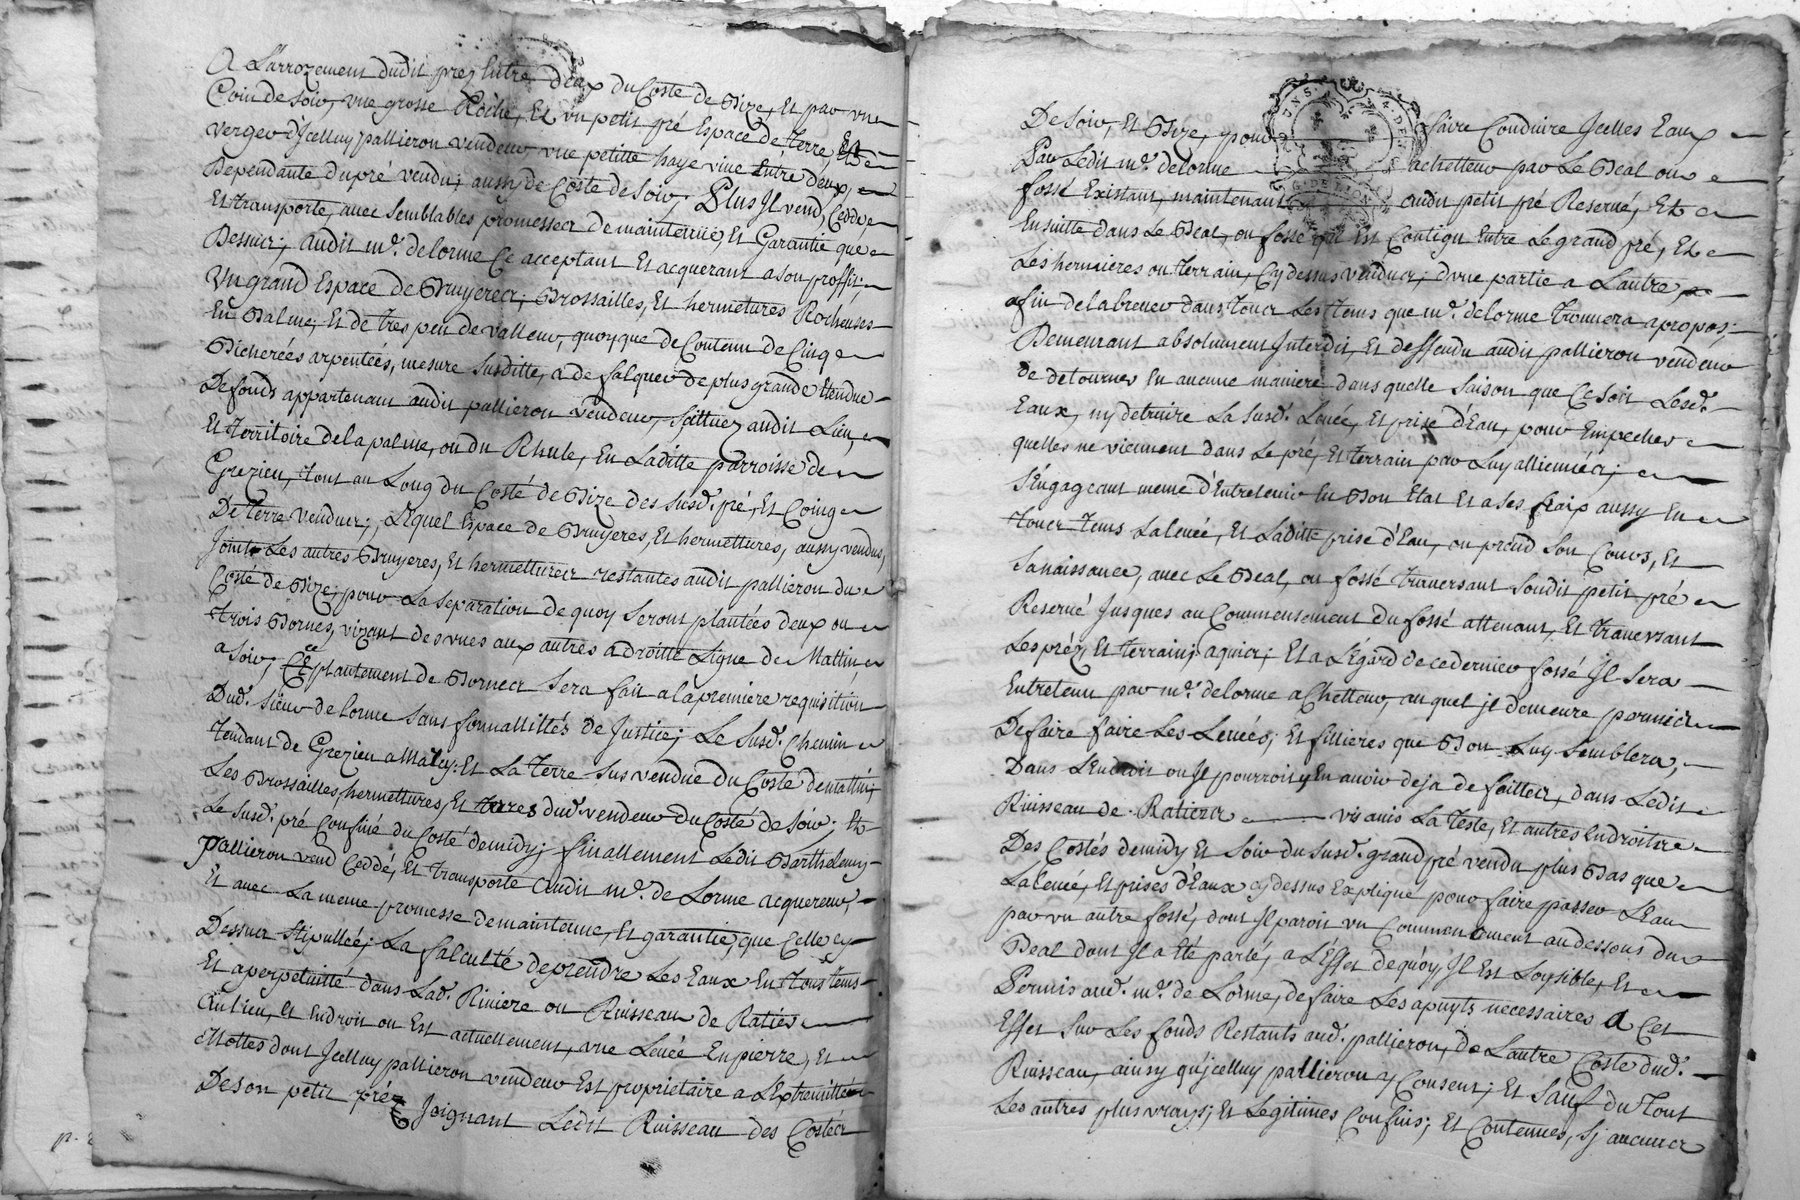 A L'arrozement dudit prez Entre deux du Costé de Bize, Et par vn
Coin de soir, vne grosse Roche, Et vn petit pré Espace de Terre Et
verger d'Jcelluy pallieron vendeur, vne petitte haye vive Entre deux,
Dependante du pré vendu; aussy de Costé de soir; Plus Jl vend, Cedde
Et transporte, avec semblables promesses de maintenüe, Et Garantie que
Dessus; audit mr. delorme Ce acceptant Et acquerant a son proffit;
Vn grand Espace de Bruyeres, Brossailles, Et hermetures Rocheuses
En Balme; Et de tres peu de valleur, quoyque de Contenu de Cinq
Bicherées arpentées, mesure susditte, a de falquer de plus grande Etendue
De fonds appartenant audit pallieron vendeur, scittuez audit Lieu,
Et Territoire de la palme, ou du Rhule, En Laditte parroisse de
Grezieu, tout au Long du Costé de Bize des susd. pré, Et Coing
De Terre vendus; Lequel Espace de Bruyeres, Et hermettures, aussy vendus,
Joint Les autres Bruyeres, Et hermettures restantes audit pallieron du
Costé de Bize; pour La separation de quoy seront plantées deux ou
trois Bornes, vizant des vnes aux autres a droitte Ligne de Mattin,
a soir, Ce plantement de Bornes sera fait a la premiere requisition
Dud. sieur delorme sans formallittés de Justice; Le susd. Chemin
Tendant de Grezieu a Maley: Et La Terre sus vendue du Costé de mattin;
Les Brossailles, hermettures, Et terres dud. vendeur du Costé de soir; Et
Le susd. pré Confiné du Costé de midy; finallement Ledit Barthelemy
Pallieron vend Ceddé, Et transporte audit mr. de Lorme acquereur,
Et avec La meme promesse de maintenue, Et garantie, que Celle cy
Dessus stipullée; La faculté de prendre Les Eaux En tous tems
Et a perpetuitté dans Lad. Riviere ou Ruisseau de Ratier
Au Lieu, Et Endroit ou Est actuellement, vne Levée En pierre, Et
Mottes dont Jcelluy pallieron vendeur Est proprietaire a L'Extremitté
De son petit préz Joignant Ledit Ruisseau des Costés
De soir, Et Bize, pour faire Conduire Jcelles Eaux
Par Ledit mr. delorme achetteur par Le Beal ou
fossé Existant, maintenant audit petit pré Reservé, Et
Ensuitte dans Le Beal, ou fossé qui Est Contigu Entre Le grand pré, Et
Les hermieres ou terrain, Cy dessus vendus; d'vne partie a Lautre,
afin de labrever dans tous Les tems que mr. delorme trouvera apropos;
Demeurant absolument Interdit, Et deffendu audit pallieron vendeur
de detourner En aucune maniere dans quelle saison que Ce soit Lesd.
Eaux, ny detruire La susd. Levée, Et prise d'Eau, pour Empecher
quelles ne viennent dans Le pré, Et terrain par Luy alliennés;
s'Engageant meme d'Entretenir En Bon Etat Et a ses fraix aussy En
Tous tems La levée, Et Laditte prise d'Eau, ou prend son Cours, Et
sa naissance, avec Le Beal, ou fossé traversant soudit petit pré
Reservé Jusques au Commensement du fossé attenant, Et traversant
Les prés, Et terrain; aquis; Et a L'Egard de ce dernier fossé Jl sera
Entretenu par mr. delorme achetteur, au quel jl demeure permis
De faire faire Les Levées; Et fillieres que Bon Luy semblera;
Dans L'Endroit ou Jl pourroit y En avoir deja de faittes, dans Ledit
Ruisseau de Ratier vis avis La Teste, Et autres Endroits
Des Costés de midy Et soir du susd. grand pré vendu plus Bas que
La levée, Et prises d'Eaux cy dessus Expliqué pour faire passer L'Eau
par vn autre fossé, dont Jl paroit vn Commencement au dessous du
Beal dont Jl a Eté parlé, a L'Effet de quoy Jl Est Loysible, Et
Permis aud. mr. de Lorme, de faire Les apuyts necessaires a Cet
Effet sur Les fonds Restants aud. pallieron, de L'autre Costé dud.
Ruisseau, ainsy qu'jcelluy pallieron y Consent; Et sauf du tout
Les autres plus vrays; Et Legitimes Confins; Et Contenues, sj aucunes